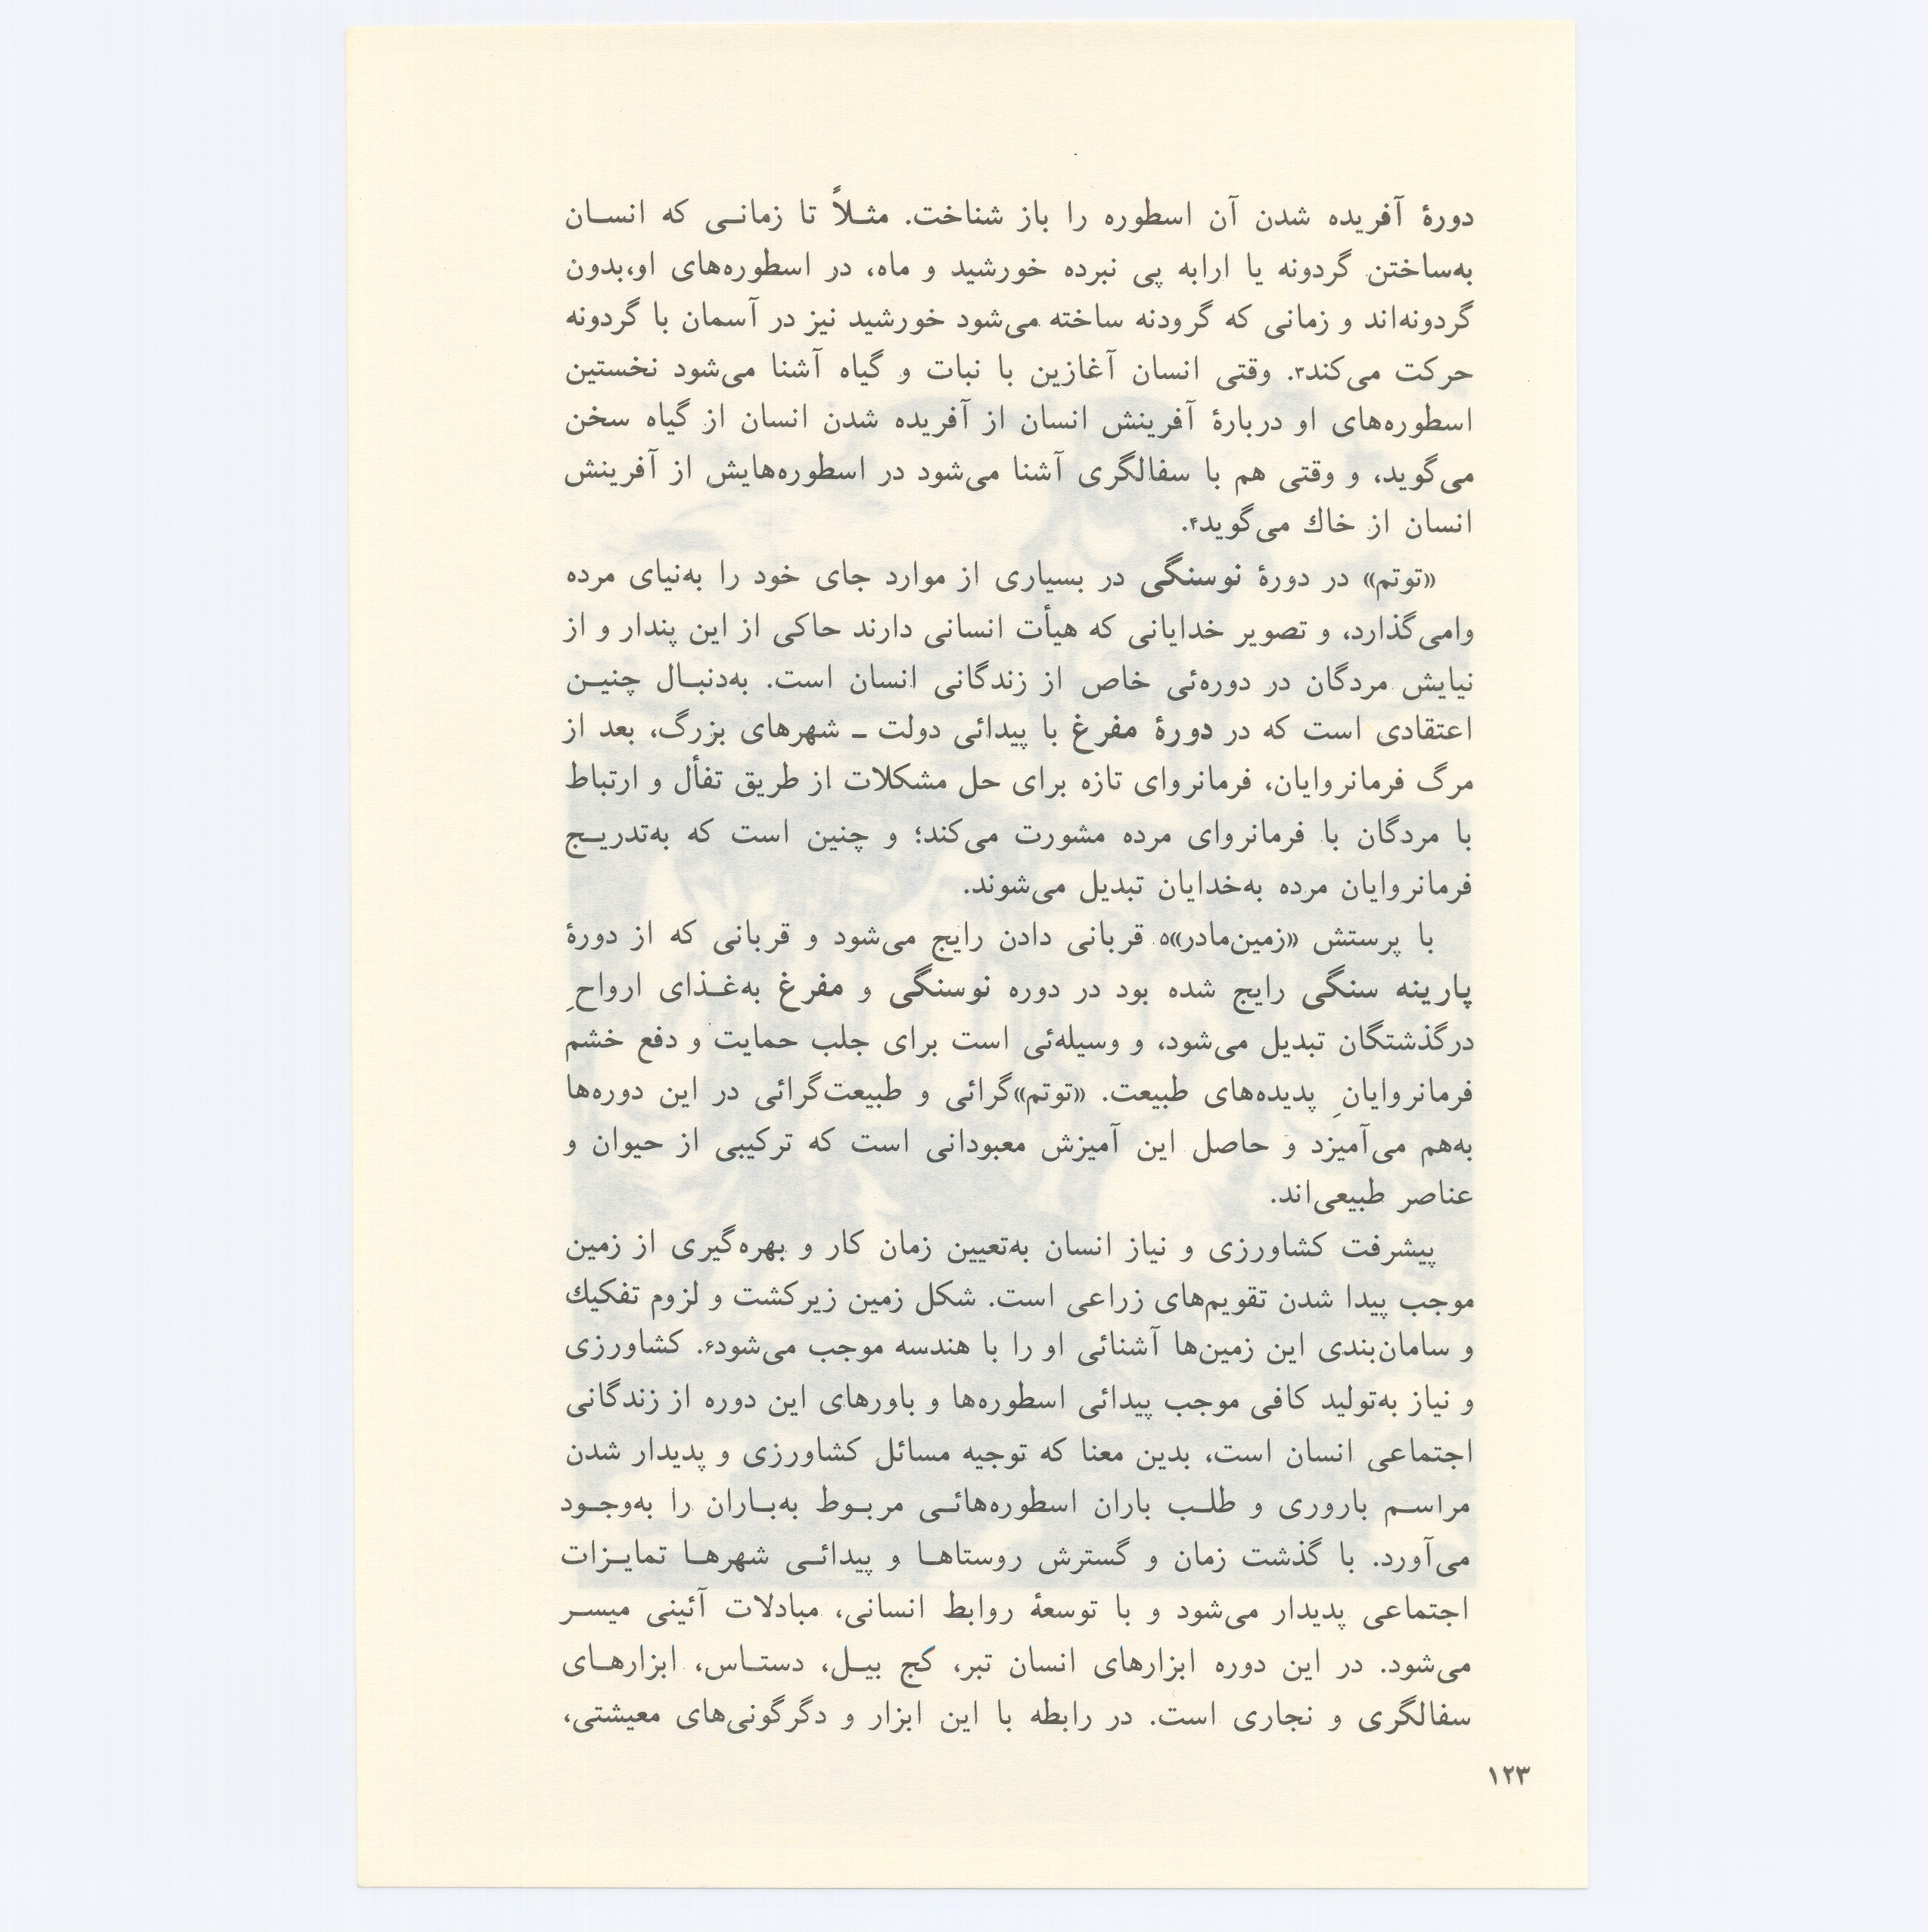 دورهٔ آفریده شدن آن اسطوره را باز شناخت. مثلاً تا زمانی که انسان
به‌ساختن گردونه یا ارابه پی نبرده خورشید و ماه، در اسطوره‌های او،بدون
گردونه‌اند و زمانی که گرودنه ساخته می‌شود خورشید نیز در آسمان با گردونه
حرکت می‌کند۳. وقتی انسان آغازین با نبات و گیاه آشنا می‌شود نخستین
اسطوره‌های او دربارهٔ آفرینش انسان از آفریده شدن انسان از گیاه سخن
می‌گوید، و وقتی هم با سفالگری آشنا می‌شود در اسطوره‌هایش از آفرینش
انسان از خاك می‌گوید۴.
«توتم» در دورهٔ نوسنگی در بسیاری از موارد جای خود را به‌نیای مرده
وامی‌گذارد، و تصویر خدایانی که هیأت انسانی دارند حاکی از این پندار و از
نیایش مردگان در دوره‌ئی خاص از زندگانی انسان است. به‌دنبال چنین
اعتقادی است که در دورهٔ مفرغ با پیدائی دولت ـ شهرهای بزرگ، بعد از
مرگ فرمانروایان، فرمانروای تازه برای حل مشکلات از طریق تفأل و ارتباط
با مردگان با فرمانروای مرده مشورت می‌کند؛ و چنین است که به‌تدریج
فرمانروایان مرده به‌خدایان تبدیل می‌شوند.
با پرستش «زمین‌مادر»۵ قربانی دادن رایج می‌شود و قربانی که از دورهٔ
پارینه سنگی رایج شده بود در دوره نوسنگی و مفرغ به‌غذای ارواحِ
درگذشتگان تبدیل می‌شود، و وسیله‌ئی است برای جلب حمایت و دفع خشم
فرمانروایانِ پدیده‌های طبیعت. «توتم»گرائی و طبیعت‌گرائی در این دوره‌ها
به‌هم می‌آمیزد و حاصل این آمیزش معبودانی است که ترکیبی از حیوان و
عناصر طبیعی‌اند.
پیشرفت کشاورزی و نیاز انسان به‌تعیین زمان کار و بهره‌گیری از زمین
موجب پیدا شدن تقویم‌های زراعی است. شکل زمین زیرکشت و لزوم تفکیك
و سامان‌بندی این زمین‌ها آشنائی او را با هندسه موجب می‌شود۶. کشاورزی
و نیاز به‌تولید کافی موجب پیدائی اسطوره‌ها و باورهای این دوره از زندگانی
اجتماعی انسان است، بدین معنا که توجیه مسائل کشاورزی و پدیدار شدن
مراسم باروری و طلب باران اسطوره‌هائی مربوط به‌باران را به‌وجود
می‌آورد. با گذشت زمان و گسترش روستاها و پیدائی شهرها تمایزات
اجتماعی پدیدار می‌شود و با توسعهٔ روابط انسانی، مبادلات آئینی میسر
می‌شود. در این دوره ابزارهای انسان تبر، کج بیل، دستاس، ابزارهای
سفالگری و نجاری است. در رابطه با این ابزار و دگرگونی‌های معیشتی،
۱۲۳